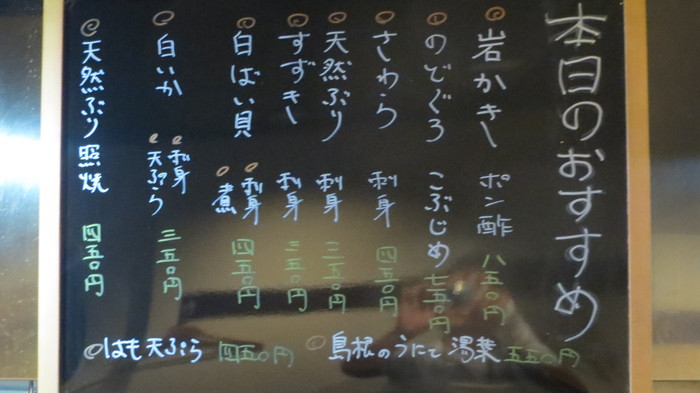 本日のおすすめ
岩かき ポン酢 八五〇円
のどぐろ こぶじめ 七五〇円
さわら 刺身 四五〇円
天然ぶり 刺身 三五〇円
すずき 刺身 三五〇円
白ばい貝 刺身 煮 四五〇円
白いか 刺身 天ぷら 三五〇円
天然ぶり照焼 四五〇円
島根のうにて 湯葉 五五〇円
はも天ぷら 四五〇円